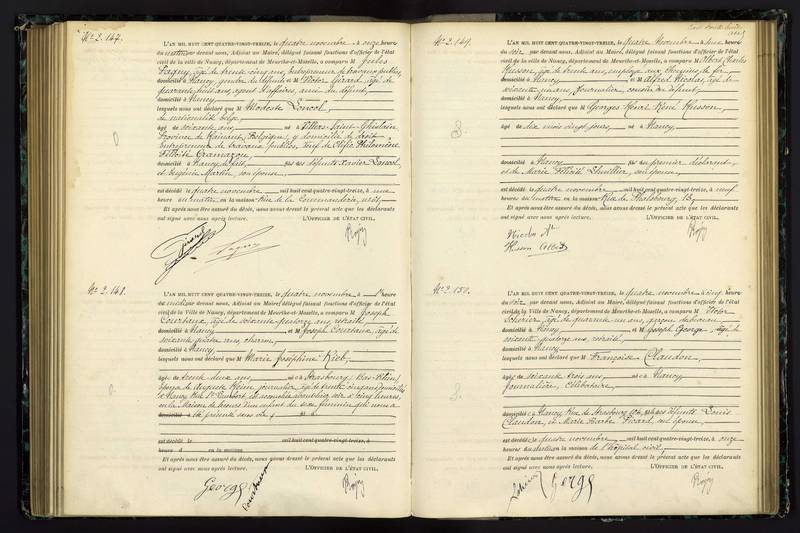 N° 2.147.
L'AN MIL HUIT CENT QUATRE-VINGT-TREIZE, le quatre novembre à onze heures
du matin devant nous, Adjoint au Maire, délégué faisant fonctions d'officier de l'état
civil de la Ville de Nancy, département de Meurthe-et-Moselle, a comparu M Jules
Pagny, âgé de trente cinq ans, entrepreneur de travaux publics,
domicilié à Nancy, gendre du défunt et M Victor Girard, âgé de
quarante huit ans, agent d'affaires, ami du défunt,
domicilié à Nancy
lesquels nous ont déclaré que M Modeste
de nationalité belge,
âgé de soixante ans, né à Villers-Saint-Ghislain,
Province de Hainaut (Belgique), y domicilié de droit
entrepreneur de travaux publics, veuf de Philomène
Félicité
domicilié à Nancy de fait, fils des défunts Xavier
et Virginie Martin, son épouse
est décédé le quatre novembre mil huit cent quatre-vingt-treize, à une
heure du matin, en la maison rue de la Commanderie,
Et après nous être assuré du décès, nous avons dressé le présent acte que les déclarants
ont signé avec nous après lecture. L'OFFICIER DE L'ÉTAT CIVIL,
Girard
Pagny
N° 2.148.
L'AN MIL HUIT CENT QUATRE-VINGT-TREIZE, le quatre novembre à heure
devant nous, Adjoint au Maire, délégué faisant fonctions d'officier de l'état
civil de la Ville de Nancy, département de Meurthe-et-Moselle, a comparu M Joseph
âgé de soixante quatorze ans, retraité,
domicilié à Nancy et M Joseph Courtaux, âgé de
soixante quatre ans,
domicilié à Nancy,
lesquels nous ont déclaré que Marie Joséphine Rieb,
âgée de trente deux ans, née à Strasbourg (Bas-Rhin)
épouse de Auguste journalier, âgé de trente cinq ans, domiciliés
à Nancy, est accouchée soir à cinq heures,
en la Maison de Secours d'un enfant du sexe féminin qu'il nous a
été présenté sans vie,
est décédé le mil huit cent quatre-vingt-treize, à
heure d en la maison
Et après nous être assuré du décès, nous avons dressé le présent acte que les déclarants
ont signé avec nous après lecture. L'OFFICIER DE L'ÉTAT CIVIL,
George
Courtaux
N° 2.149.
L'AN MIL HUIT CENT QUATRE-VINGT-TREIZE, le quatre novembre à heure
du soir par devant nous, Adjoint au Maire, délégué faisant fonctions d'officier de l'état
civil de la Ville de Nancy, département de Meurthe-et-Moselle, a comparu M Albert Charles
Husson, âgé de trente ans, employé aux chemins de fer,
domicilié à Nancy, et M Alfred Nicolas, âgé de
soixante un ans, journalier, cousin du défunt
domicilié à Nancy,
lesquels nous ont déclaré que M Georges Henri René Husson,
âgé de dix mois vingt jours, né à Nancy,
domicilié à Nancy fils du premier déclarant
et de Marie Félicité Lhuillier, son épouse,
est décédé le quatre novembre mil huit cent quatre-vingt-treize, à neuf
heures du matin, en la maison Rue de Phalsbourg, 13,
Et après nous être assuré du décès, nous avons dressé le présent acte que les déclarants
ont signé avec nous après lecture. L'OFFICIER DE L'ÉTAT CIVIL,
Nicolas At
Husson Albert
N° 2.150.
L'AN MIL HUIT CENT QUATRE-VINGT-TREIZE, le quatre novembre à cinq heures
du soir, par devant nous, Adjoint au Maire, délégué faisant fonctions d'officier de l'état
civil de la Ville de Nancy, département de Meurthe-et-Moselle, a comparu M Victor
âgé de quarante un ans, garçon de bureau,
domicilié à Nancy et M Joseph George, âgé de
soixante quatorze ans, retraité,
domicilié à Nancy
lesquels nous ont déclaré que M Françoise Claudon,
âgée de soixante trois ans, née à Nancy
journalière, célibataire,
domicilié à Nancy, Rue de Strasbourg fille des défunts Louis
Claudon, et Marie Barbe Picard, son épouse,
est décédé le quatre novembre mil huit cent quatre-vingt-treize, à onze
heures du matin en la maison de l'hôpital civil,
Et après nous être assuré du décès, nous avons dressé le présent acte que les déclarants
ont signé avec nous après lecture. L'OFFICIER DE L'ÉTAT CIVIL,
George